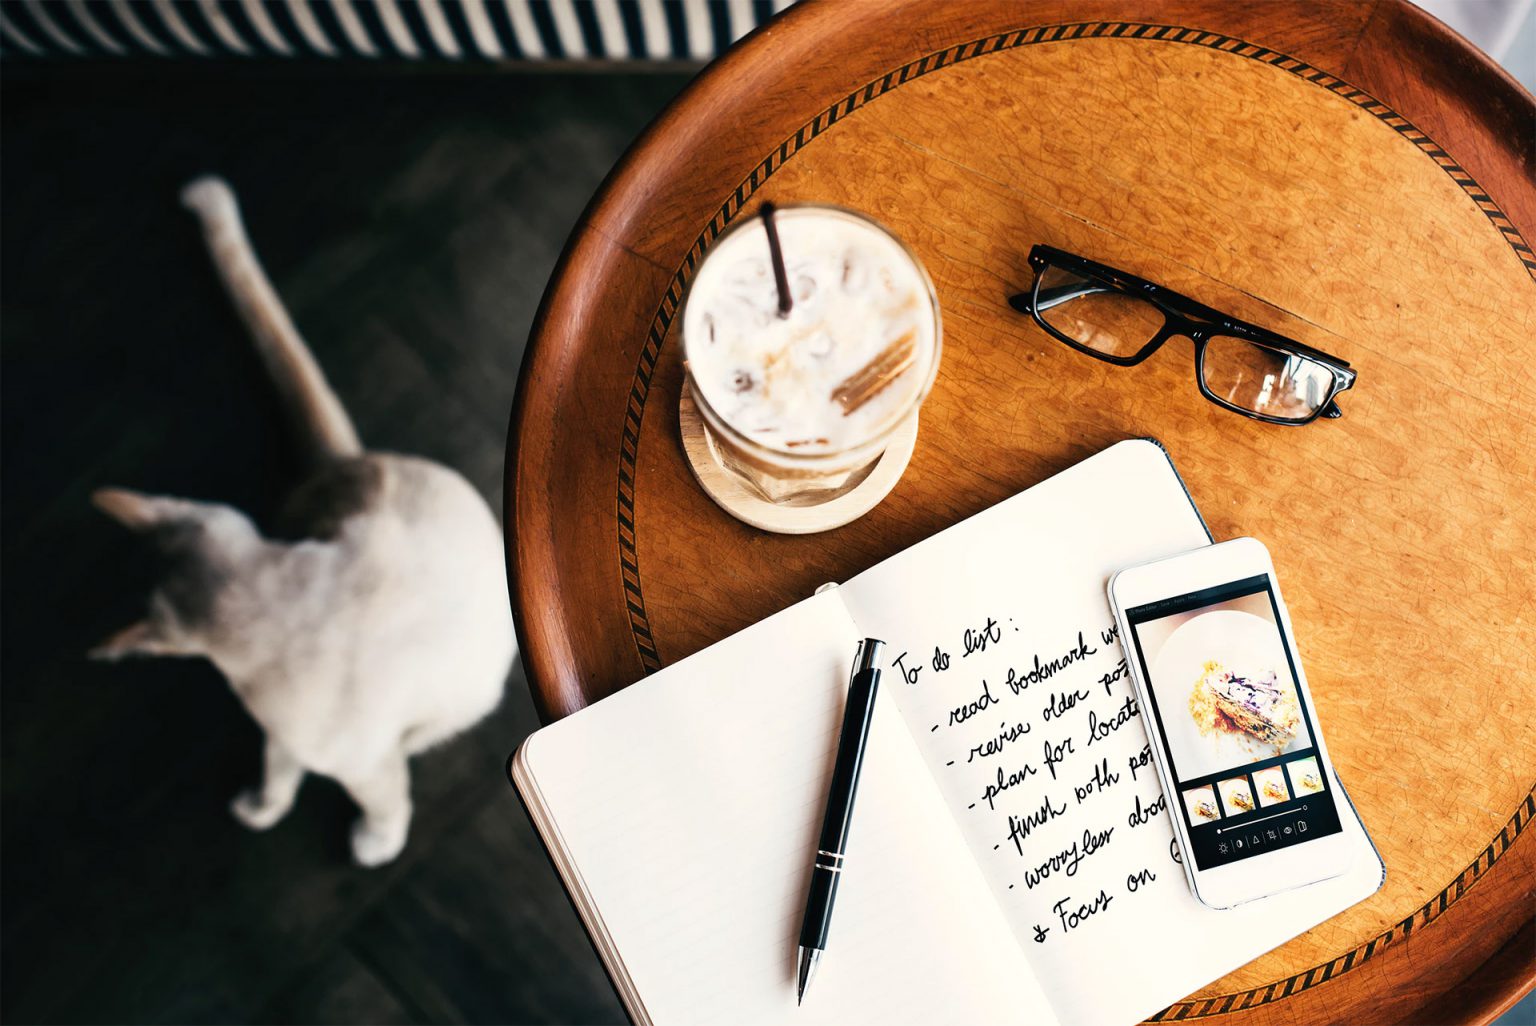 To do list :
- read bookmark we
- revise older pos
- plan for locat
- finish both po
- worry less abou
Focus on